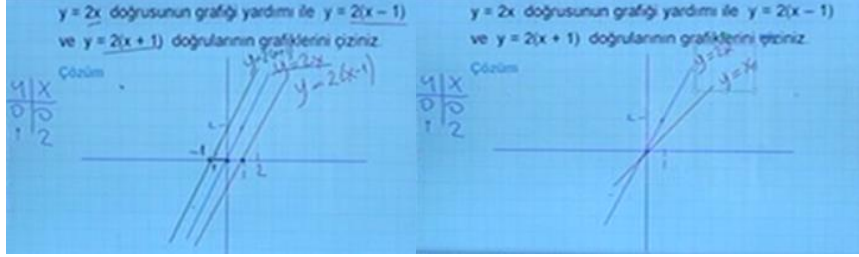 y = 2x doğrusunun grafiği yardımı ile y = 2(x – 1)
ve y = 2(x + 1) doğrularının grafiklerini çiziniz.
Çözüm
y x
0 0
1 2
y=2x
y=2(x-1)
-1
1 2
y = 2x doğrusunun grafiği yardımı ile y = 2(x – 1)
ve y = 2(x + 1) doğrularının grafiklerini çiziniz.
Çözüm
y x
0 0
1 2
y=2x
1